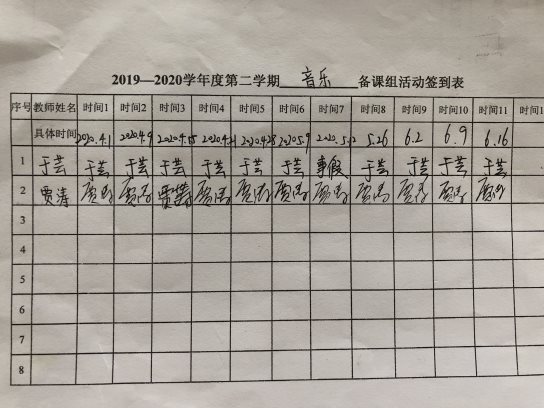 2019—2020学年度第二学期 音乐 备课组活动签到表
序号 教师姓名 时间1 时间2 时间3 时间4 时间5 时间6 时间7 时间8 时间9 时间10 时间11 时间1
具体时间 2020.4.1 2020.4.9 2020.4.15 2020.4.21 2020.4.28 2020.5.9 2020.5.12 5.26 6.2 6.9 6.16
1 于芸 于芸 于芸 于芸 于芸 于芸 于芸 事假 于芸 于芸 于芸 于芸
2 贾涛 贾涛 贾涛 贾涛 贾涛 贾涛 贾涛 贾涛 贾涛 贾涛 贾涛 贾涛
3
4
5
6
7
8